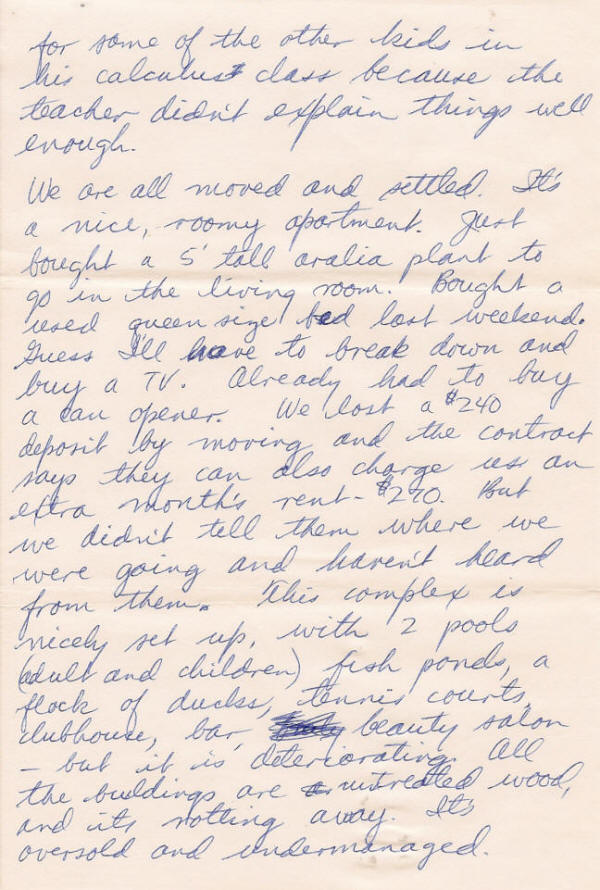 for some of the other kids in
his calculus class because the
teacher didn't explain things well
enough.
We are all moved and settled. It's
a nice, roomy apartment. Just
bought a 5' tall aralia plant to
go in the living room. Bought a
used queen size bed last weekend.
Guess I'll have to break down and
buy a TV. Already had to buy
a can opener. We lost a $240
deposit by moving and the contract
says they can also charge us an
extra month's rent - $270. But
we didn't tell them where we
were going and haven't heard
from them. This complex is
nicely set up, with 2 pools
(adult and children) fish ponds, a
flock of ducks, tennis courts,
clubhouse, bar, beauty salon
- but it is deteriorating. All
the buildings are untreated wood,
and it's rotting away. It's
oversold and undermanaged.